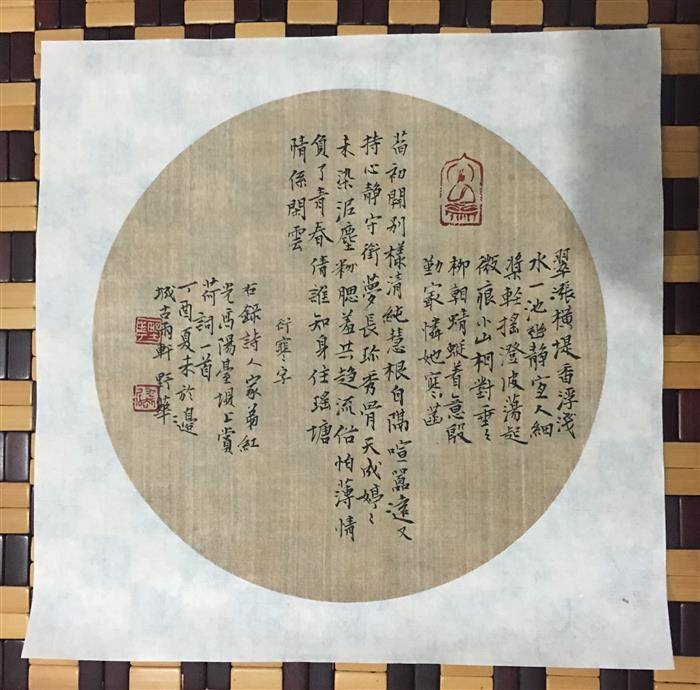 翠漲橫堤香浮淺
水一池幽靜宜人細
槳輕搖澄波蕩起
微痕小山相對垂〻
柳朝蜻蜓着意殷
勤最憐她寒菡
萏初開別樣清純慧根自隔喧囂遠又
持心靜守銜夢長珎秀骨天成婷〻
未染泥塵粉腮羞共趨流俗怕薄情
負了青春倩誰知身住瑤塘
情係閑雲
衍寒字
右錄詩人家弟紅
光高陽臺堤上賞
荷詞一首
丁酉夏末於邊
城古雨軒 野華